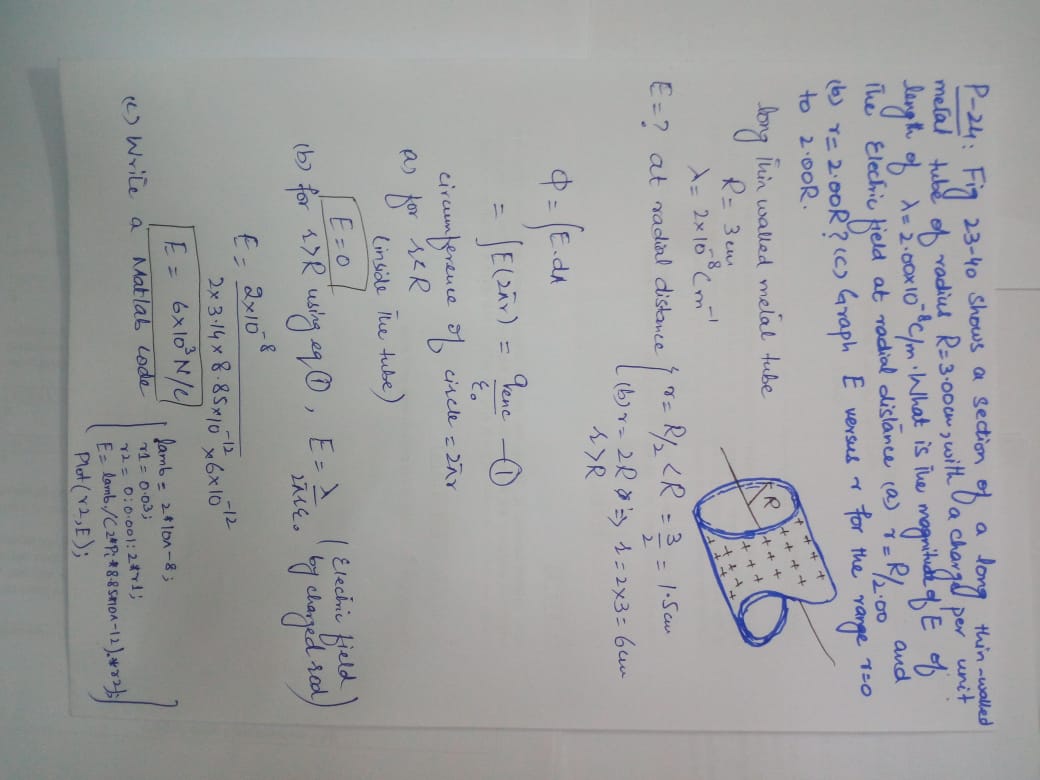 P-24: Fig 23-40 shows a section of a long thin-walled
metal tube of radius R=3.00cm, with a charge per unit
length of λ=2.00x10⁻⁸C/m. What is the magnitude of E of
the Electric field at radial distance (a) r=R/2.00 and
(b) r=2.00R? (c) Graph E versus r for the range r=0
to 2.00R.
long thin walled metal tube
R = 3 cm
λ = 2x10⁻⁸ C m⁻¹
R
E = ? at radial distance { r = R/2 < R = 3/2 = 1.5cm
(b) r = 2R ⇒ r = 2x3 = 6cm
r>R
Φ = ∫E.dA
= ∫E(2πr) = qenc/ε₀ — ①
circumference of circle = 2πr
a) for r<R
(inside the tube)
E=0
(b) for r>R using eq ①, E = λ/2πrε₀ (Electric field
by charged rod)
E = 2x10⁻⁸ / 2x3.14x8.85x10⁻¹² x6x10⁻¹²
E = 6x10³ N/C
(c) Write a Matlab code
lamb = 2*10^-8;
r1 = 0.03;
r2 = 0:0.001:2*r1;
E = lamb./(2*Pi*8.85*10^-12).*r2);
Plot(r2,E);